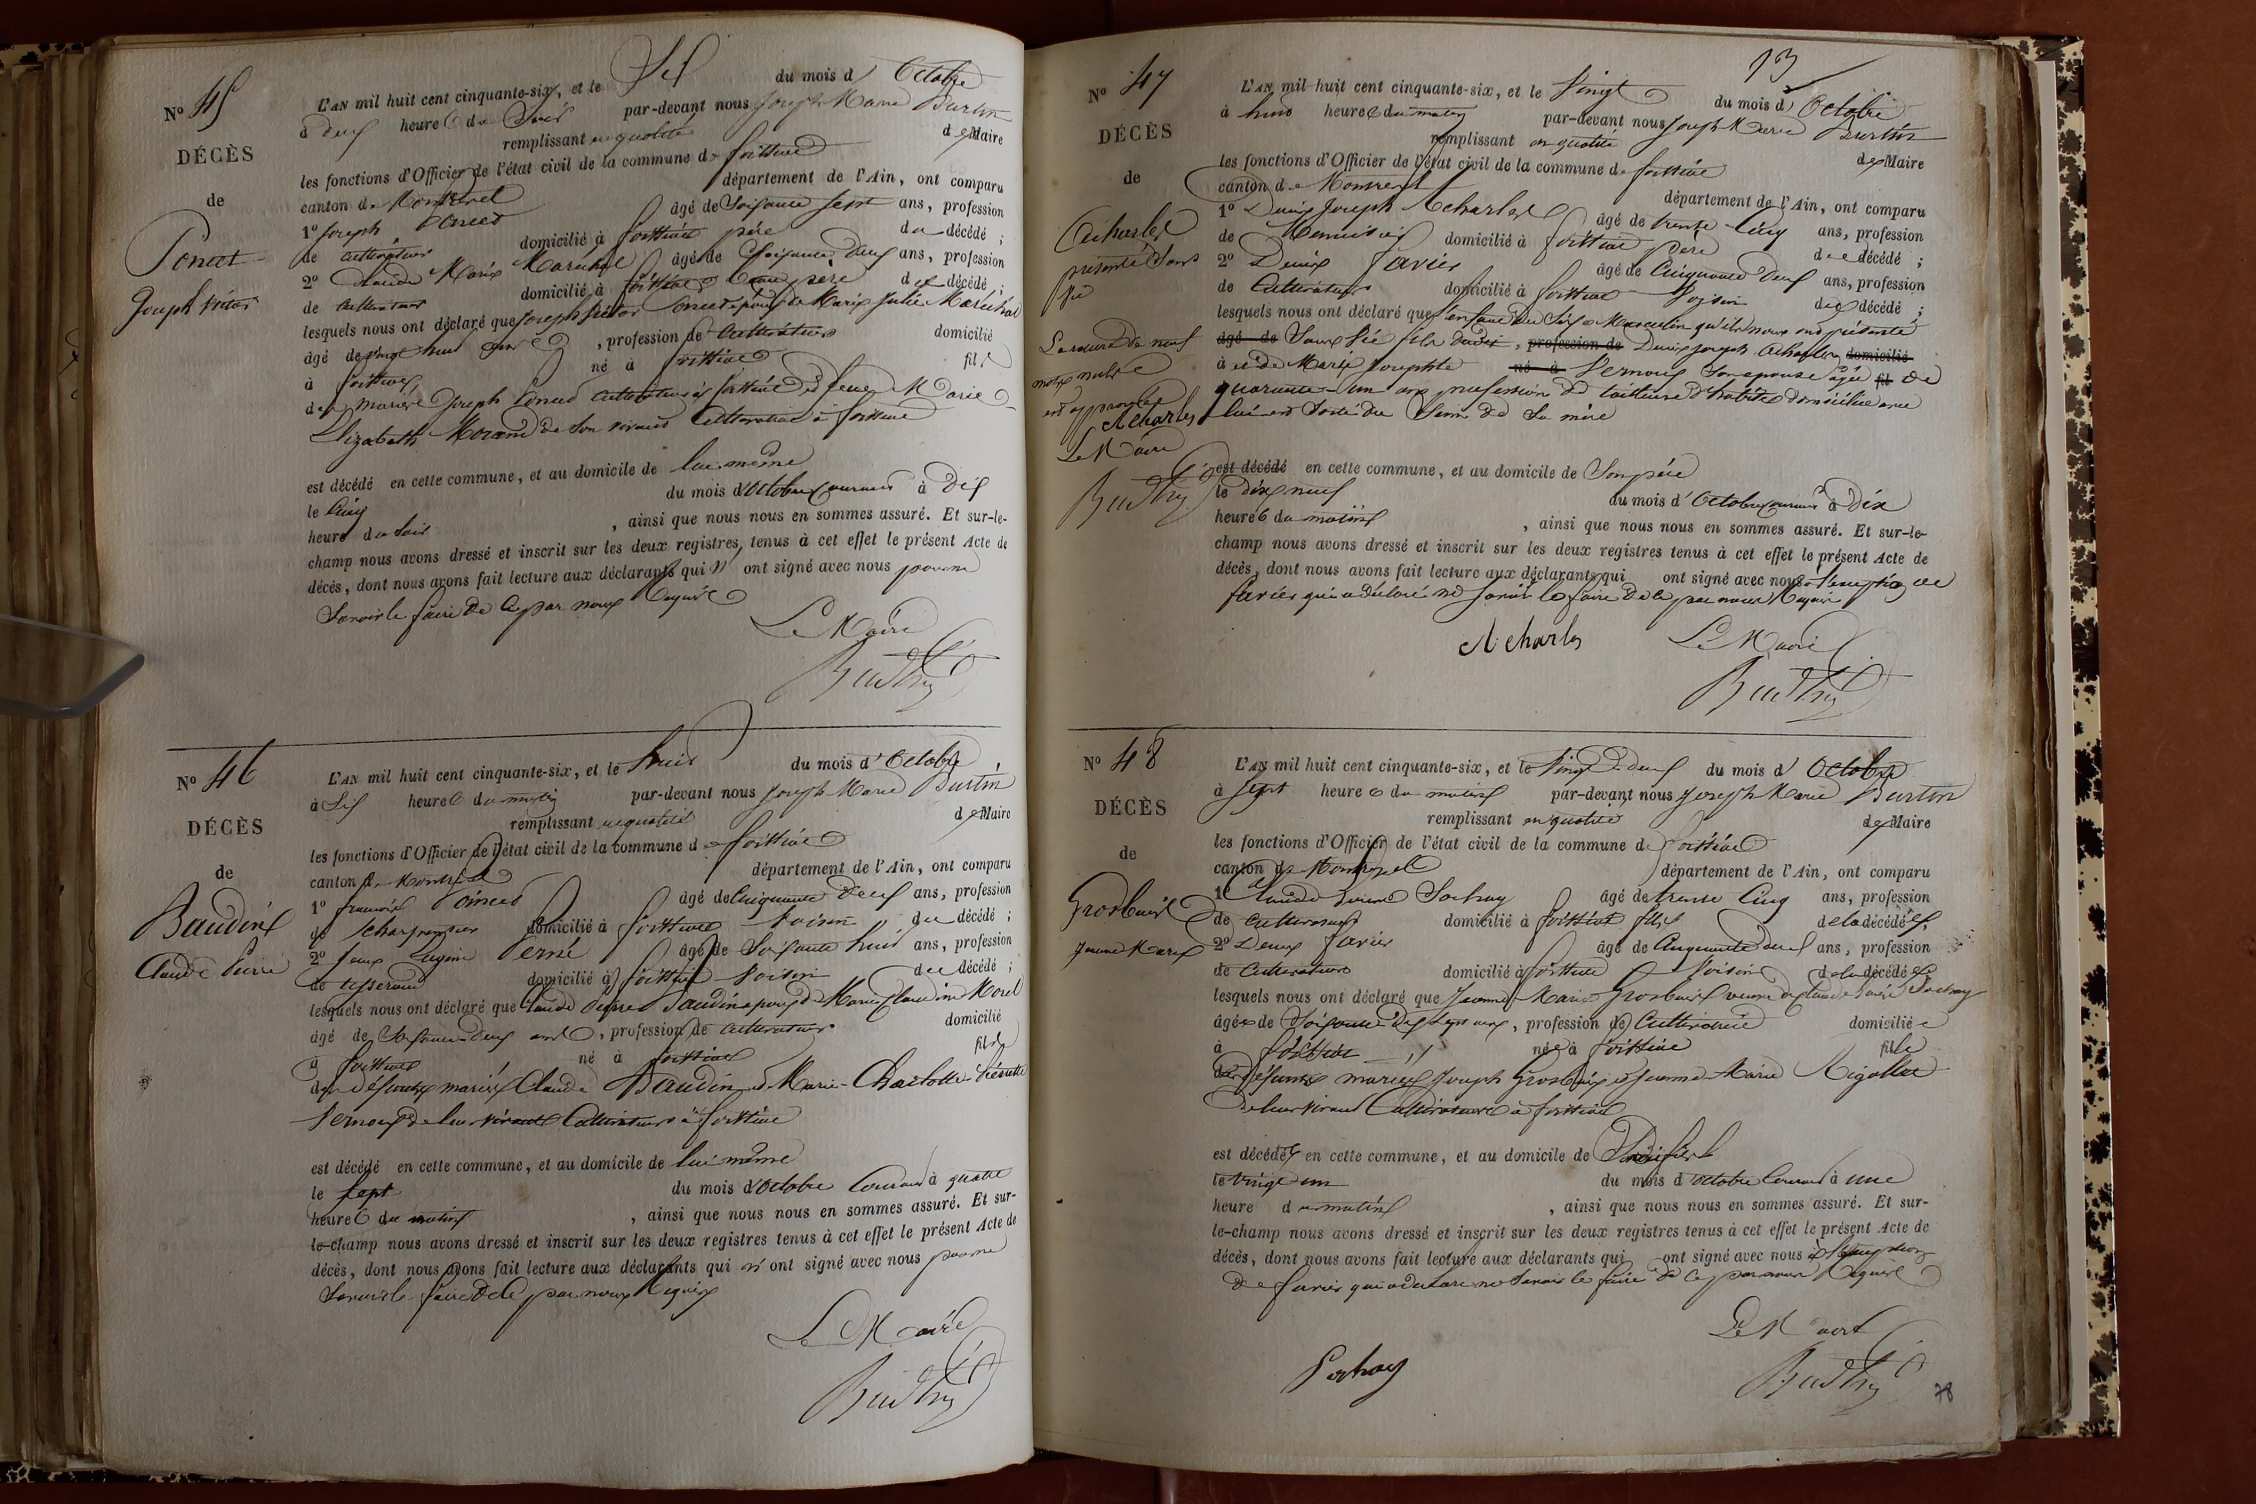 N° 45
DÉCÈS
de
Poncet
Joseph Victor
L'AN mil huit cent cinquante-six, et le Six du mois d'Octobre
à deux heures du Soir par-devant nous Joseph Marie Burtin
remplissant en qualité de Maire
les fonctions d'Officier de l'état civil de la commune de foissiat
canton de Montrevel département de l'Ain, ont comparu
1° Joseph Poncet âgé de Soixante Sept ans, profession
de cultivateur domicilié à foissiat père du décédé ;
2° Claude Marie Marechal âgé de Soixante Deux ans, profession
de cultivateur domicilié à foissiat Beau père du décédé ;
lesquels nous ont déclaré que Joseph Victor Poncet époux de Marie Julie Marechal
âgé de vingt huit ans, profession de Cultivateur domicilié
à foissiat né à foissiat fils
des mariés Joseph Poncet cultivateur à foissiat et feue Marie
Elizabeth Morand de Son vivant Cultivatrice à foissiat
est décédé en cette commune, et au domicile de lui même
le Cinq du mois d'Octobre Courant à Dix
heures du Soir, ainsi que nous nous en sommes assuré. Et sur-le-
champ nous avons dressé et inscrit sur les deux registres tenus à cet effet le présent Acte de
décès, dont nous avons fait lecture aux déclarants qui n'ont signé avec nous pour ne
Savoir le faire De Ce par nous Requis
Le Maire
Burtin
N° 46
DÉCÈS
de
Baudin
Claude Pierre
L'AN mil huit cent cinquante-six, et le huit du mois d'Octobre
à Six heures du matin par-devant nous Joseph Marie Burtin
remplissant en qualité de Maire
les fonctions d'Officier de l'état civil de la commune de foissiat
canton de Montrevel département de l'Ain, ont comparu
1° françois Poncet âgé de Cinquante Deux ans, profession
de Charpentier domicilié à foissiat voisin du décédé ;
2° Jean Eugène Perné âgé de Soixante huit ans, profession
de tisserand domicilié à foissiat Voisin du décédé ;
lesquels nous ont déclaré que Claude Pierre Baudin époux de Marie Claudine Morel
âgé de Soixante Deux ans, profession de Cultivateur domicilié
à foissiat né à foissiat fils
des Défunts mariés Claude Baudin et Marie-Charlotte
Vernoux de leur vivant Cultivateurs à foissiat
est décédé en cette commune, et au domicile de lui même
le Sept du mois d'Octobre Courant à quatre
heures du matin, ainsi que nous nous en sommes assuré. Et sur-
le-champ nous avons dressé et inscrit sur les deux registres tenus à cet effet le présent Acte de
décès, dont nous avons fait lecture aux déclarants qui n'ont signé avec nous pour ne
Savoir le faire De Ce par nous Requis
Le Maire
Burtin
13
N° 47
DÉCÈS
de
Acharles
présenté Sans
vie
La rature de neuf
mots nulle
est approuvée
Acharles
Le Maire
Burtin
L'AN mil huit cent cinquante-six, et le Vingt du mois d'Octobre
à huit heures du matin par-devant nous Joseph Marie Burtin
remplissant en qualité de Maire
les fonctions d'Officier de l'état civil de la commune de foissiat
canton de Montrevel département de l'Ain, ont comparu
1° Denis Joseph Acharles âgé de trente Cinq ans, profession
de Menuisier domicilié à foissiat père du décédé ;
2° Denis favier âgé de Cinquante Deux ans, profession
de Cultivateur domicilié à foissiat Voisin du décédé ;
lesquels nous ont déclaré que enfant du Sexe Masculin qu'ils nous ont présenté
âgé de Sans Vie fils dudit, profession de Denis Joseph Acharles domicilié
à et de Marie Josephte né à Vernoux Son épouse âgée fil de
quarante-un ans profession de tailleuse d'habits domiciliée avec
lui est Sorti du Sein de Sa mère
est décédé en cette commune, et au domicile de Son père
le Dix neuf du mois d'Octobre Courant à Dix
heures du matin, ainsi que nous nous en sommes assuré. Et sur-le-
champ nous avons dressé et inscrit sur les deux registres tenus à cet effet le présent Acte de
décès, dont nous avons fait lecture aux déclarants qui ont signé avec nous à l'exception de
favier qui a déclaré ne Savoir le faire De Ce par nous Requis
Acharles Le Maire
Burtin
N° 48
DÉCÈS
de
Grosbuis
Jeanne Marie
L'AN mil huit cent cinquante-six, et le Vingt Deux du mois d'Octobre
à Sept heures du matin par-devant nous Joseph Marie Burtin
remplissant en qualité de Maire
les fonctions d'Officier de l'état civil de la commune de foissiat
canton de Montrevel département de l'Ain, ont comparu
1° Claude âgé de trente Cinq ans, profession
de Cultivateur domicilié à foissiat fils de la décédée ;
2° Denis favier âgé de Cinquante Deux ans, profession
de Cultivateur domicilié à foissiat Voisin de la décédée
lesquels nous ont déclaré que Jeanne-Marie Grosbuis veuve de Claude
âgée de Soixante Dix Sept ans, profession de Cultivatrice domiciliée
à foissiat née à foissiat fille
des Défunts mariés Joseph Grosbuis et Jeanne-Marie Rigollet
De leur vivant Cultivateurs à foissiat
est décédée en cette commune, et au domicile de Son fils
le vingt un du mois d'octobre Courant à une
heure du matin, ainsi que nous nous en sommes assuré. Et sur-
le-champ nous avons dressé et inscrit sur les deux registres tenus à cet effet le présent Acte de
décès, dont nous avons fait lecture aux déclarants qui ont signé avec nous à l'exception
De favier qui a déclaré ne Savoir le faire de Ce par nous Requis
Le Maire
Burtin
78